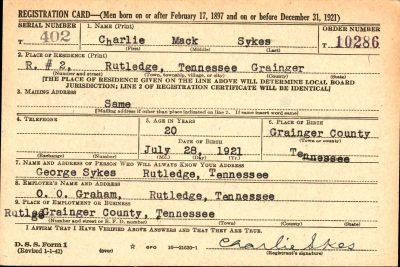 REGISTRATION CARD—(Men born on or after February 17, 1897 and on or before December 31, 1921)
SERIAL NUMBER 1. NAME (Print) ORDER NUMBER
T 402 Charlie Mack Sykes T 10286
(First) (Middle) (Last)
2. PLACE OF RESIDENCE (Print)
R. # 2, Rutledge, Tennessee Grainger
(Number and street) (Town, township, village, or city) (County) (State)
[THE PLACE OF RESIDENCE GIVEN ON THE LINE ABOVE WILL DETERMINE LOCAL BOARD
JURISDICTION; LINE 2 OF REGISTRATION CERTIFICATE WILL BE IDENTICAL]
3. MAILING ADDRESS
Same
[Mailing address if other than place indicated on line 2. If same insert word same]
4. TELEPHONE 5. AGE IN YEARS 6. PLACE OF BIRTH
20 Grainger County
DATE OF BIRTH (Town or county)
July 28, 1921 Tennessee
(Exchange) (Number) (Mo.) (Day) (Yr.) (State or country)
7. NAME AND ADDRESS OF PERSON WHO WILL ALWAYS KNOW YOUR ADDRESS
George Sykes Rutledge, Tennessee
8. EMPLOYER'S NAME AND ADDRESS
O. O. Graham, Rutledge, Tennessee
9. PLACE OF EMPLOYMENT OR BUSINESS
Grainger County, Tennessee
(Number and street or R. F. D. number) (Town) (County) (State)
I AFFIRM THAT I HAVE VERIFIED ABOVE ANSWERS AND THAT THEY ARE TRUE.
D. S. S. Form 1
(Revised 1-1-42) (over) GPO 16—21630-1 Charlie Sykes
(Registrant's signature)